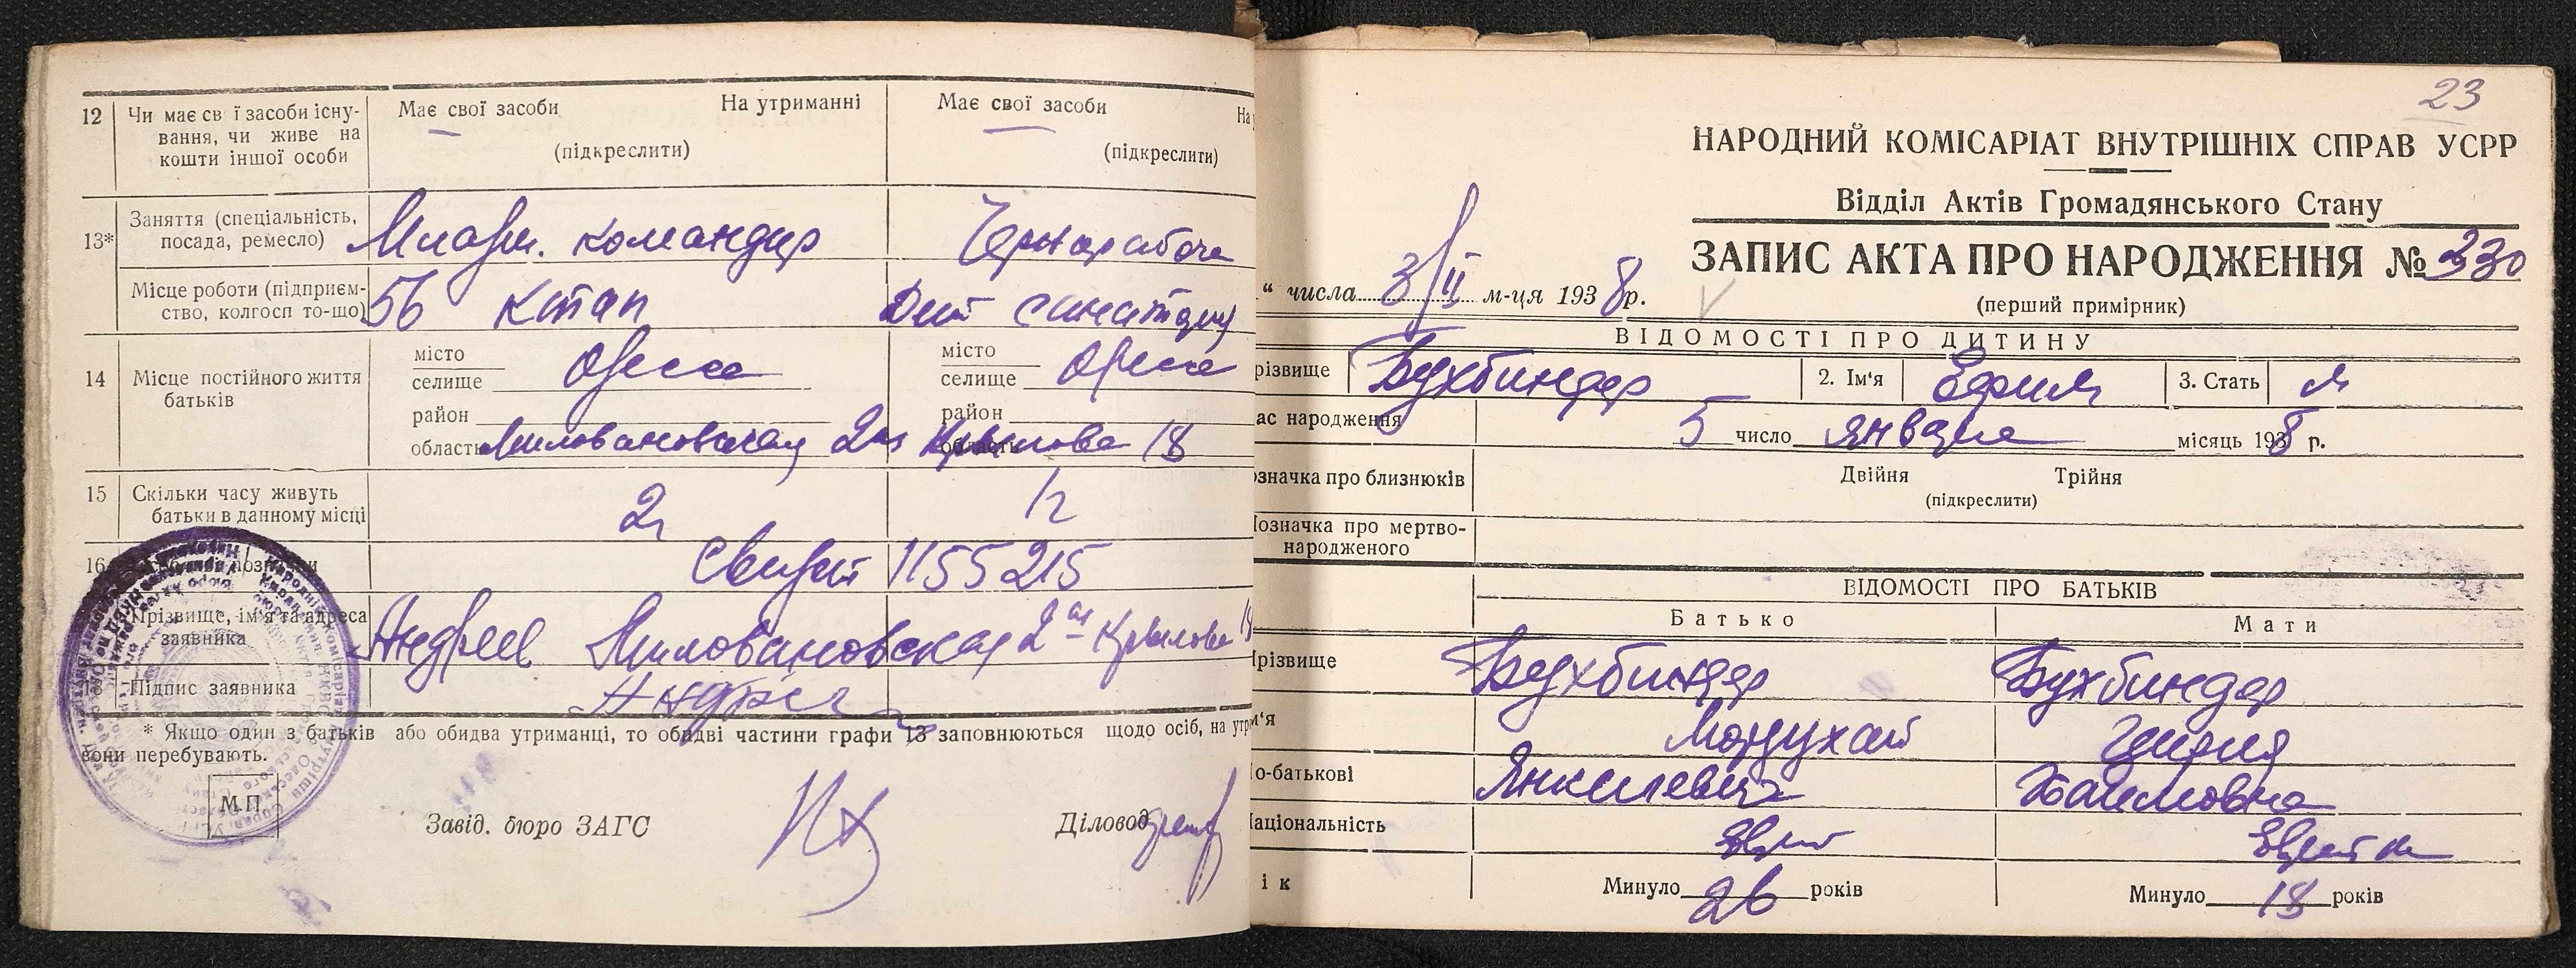 12 Чи має св ї засоби існу-
вання, чи живе на
кошти іншої особи
Має свої засоби На утриманні
(підкреслити)
Має свої засоби На
(підкреслити)
13* Заняття (спеціальність,
посада, ремесло)
командир
Місце роботи (підприєм-
ство, колгосп то-що)
56
14 Місце постійного життя
батьків
місто
селище Одесса
район
область Миловановская 2ая Крылова 18
місто
селище Одесса
район
область
15 Скільки часу живуть
батьки в данному місці
2
16
1155215
Прізвище, ім'я та адреса
заявника
Андреев Миловановская 2ая Крылова
Підпис заявника
* Якщо один з батьків або обидва утриманці, то обидві частини графи 13 заповнюються щодо осіб, на
вони перебувають.
М.П.
Завід. бюро ЗАГС
Діловод
23
НАРОДНИЙ КОМІСАРІАТ ВНУТРІШНІХ СПРАВ УСРР
Відділ Актів Громадянського Стану
ЗАПИС АКТА ПРО НАРОДЖЕННЯ № 330
“ числа 3/II м-ця 1938р.
(перший примірник)
ВІДОМОСТІ ПРО ДИТИНУ
різвище Бухбиндер 2. Ім'я Ефим 3. Стать м
ас народження 5 число января місяць 1938 р.
означка про близнюків Двійня Трійня
(підкреслити)
означка про мертво-
народженого
ВІДОМОСТІ ПРО БАТЬКІВ
Батько Мати
різвище Бухбиндер Бухбиндер
м'я Мордухай
о-батькові Янкелевич Хаимовна
аціональність Еврей Еврейка
ік Минуло 26 років Минуло 18 років